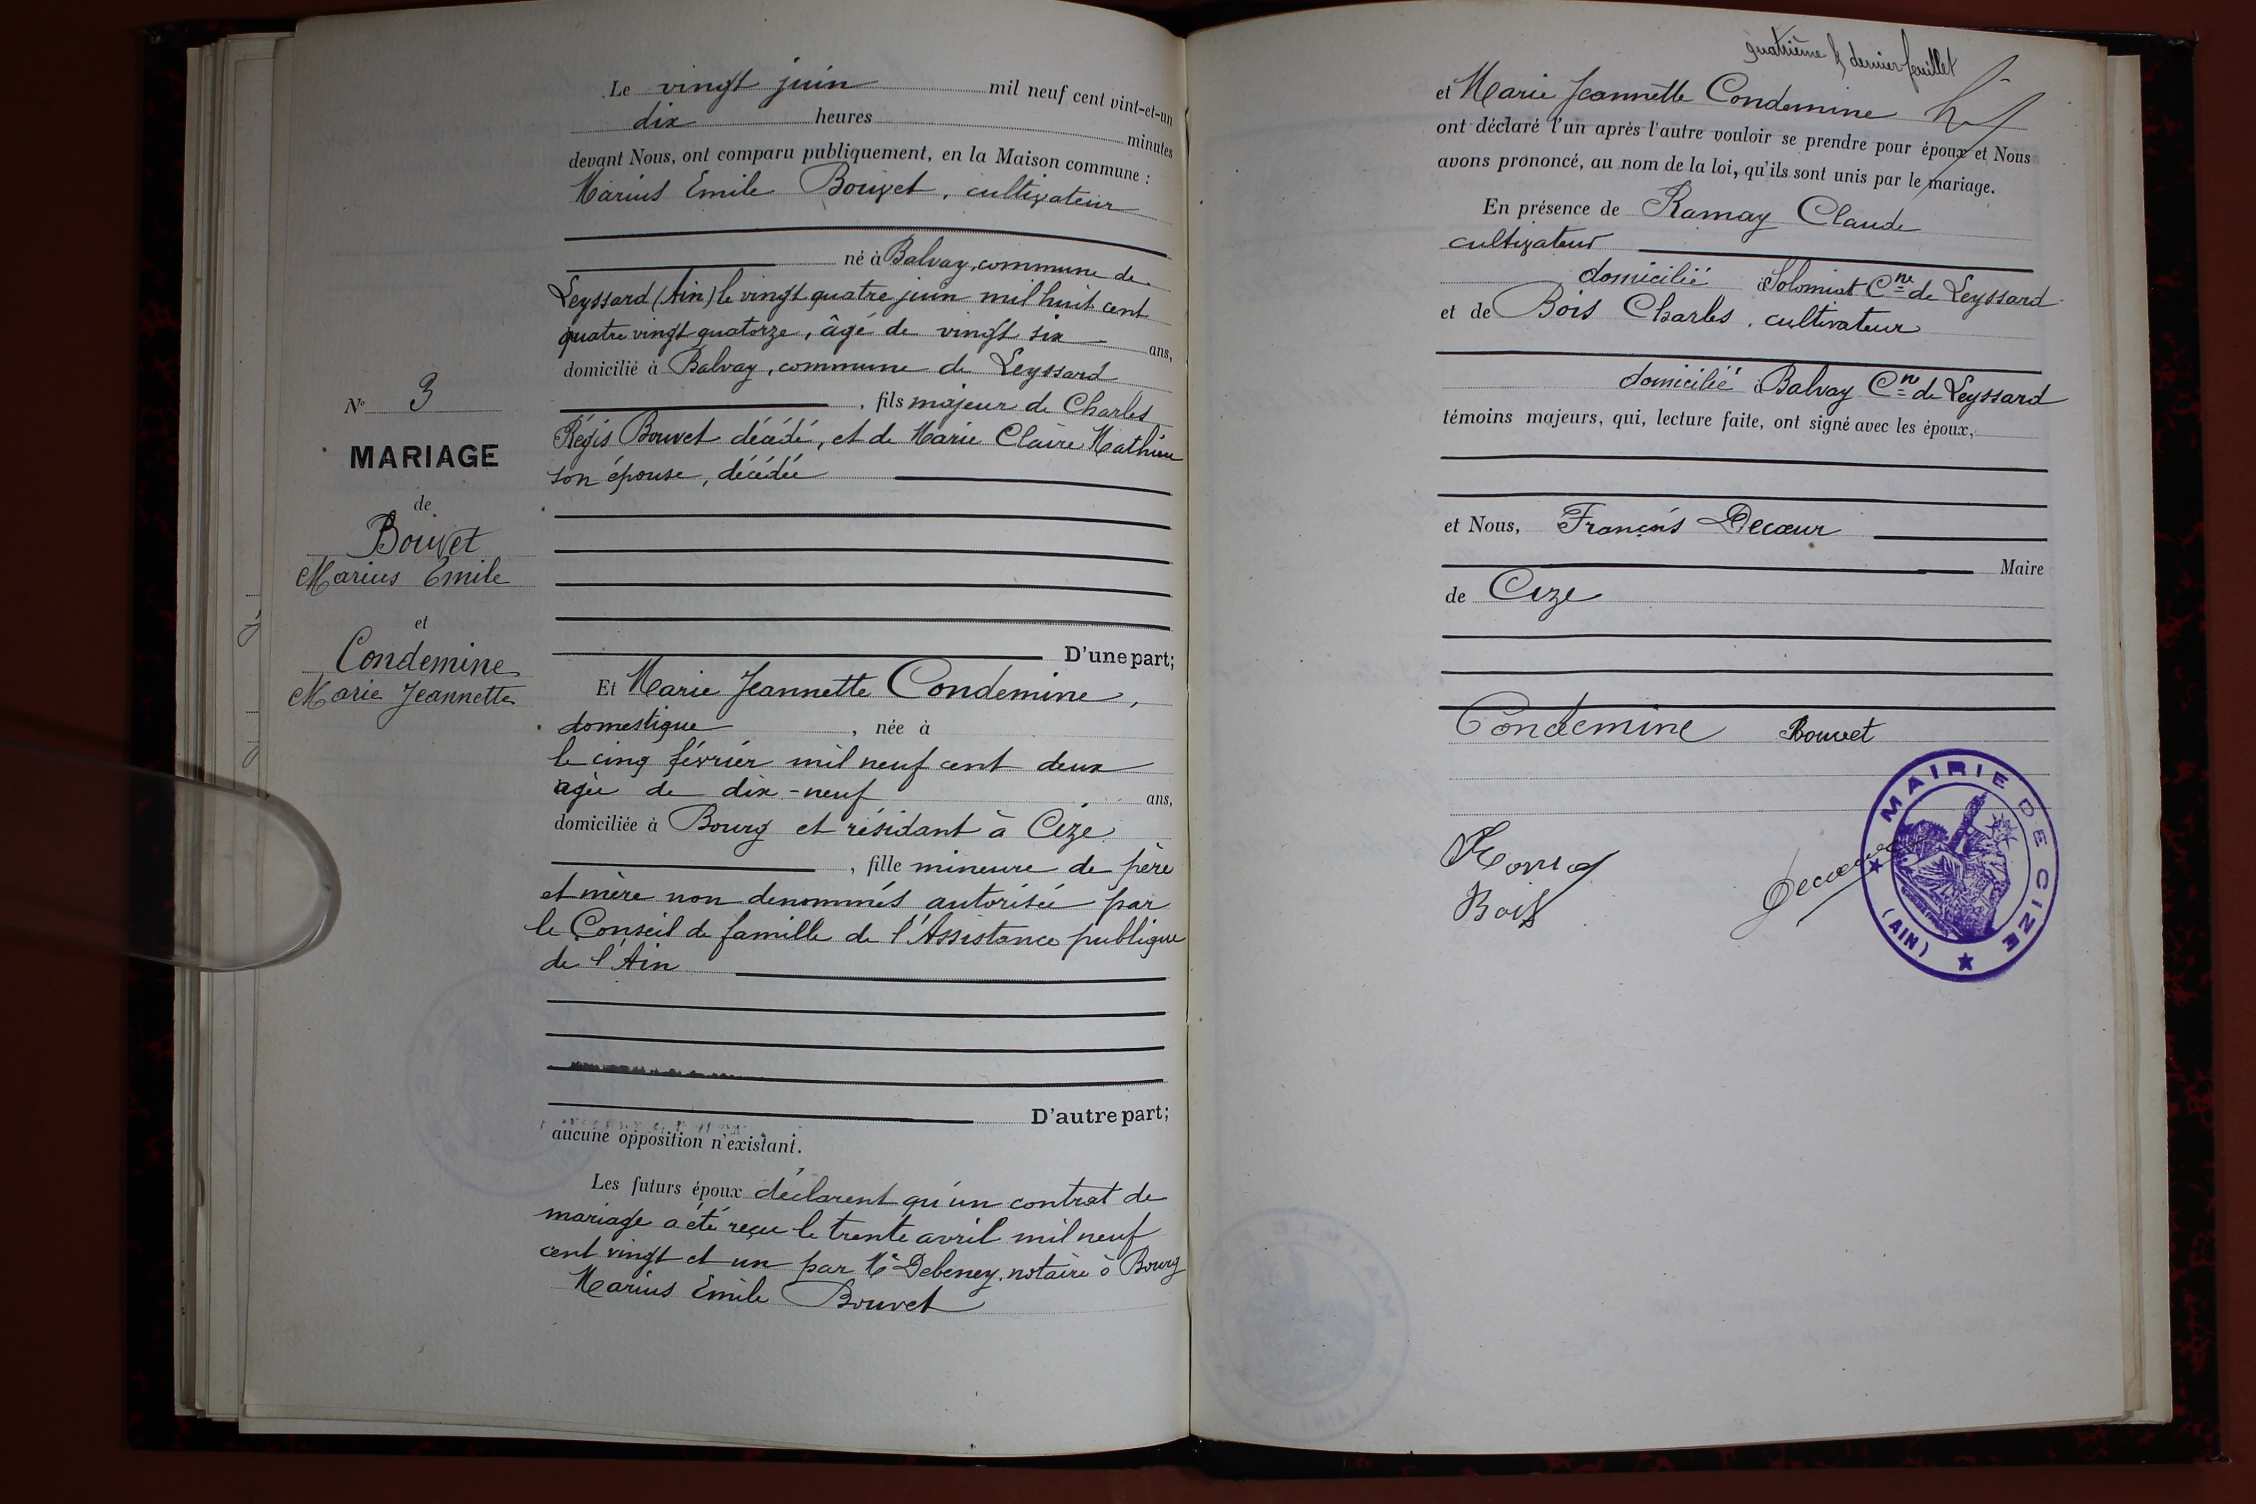 Le vingt juin mil neuf cent vint-et-un
dix heures minutes
devant Nous, ont comparu publiquement, en la Maison commune :
Marius Emile Bouvet, cultivateur
né à Balvay, commune de
Leyssard (Ain) le vingt quatre juin mil huit cent
quatre vingt quatorze, âgé de vingt six ans,
domicilié à Balvay, commune de Leyssard
, fils majeur de Charles
Régis Bouvet décédé, et de Marie Claire Mathieu
son épouse, décédée
D'une part;
Et Marie Jeannette Condemine,
domestique, née à
le cinq février mil neuf cent deux
agée de dix-neuf ans,
domiciliée à Bourg et résidant à Cize
, fille mineure de père
et mère non dénommés autorisée par
le Conseil de famille de l'Assistance publique
de l'Ain
D'autre part;
aucune opposition n'existant.
Les futurs époux déclarent qu'un contrat de
mariage a été reçu le trente avril mil neuf
cent vingt et un par Me Debeney, notaire à Bourg
Marius Emile Bouvet
No 3
MARIAGE
de
Bouvet
Marius Emile
et
Condemine
Marie Jeannette
quatrième & dernier feuillet
et Marie Jeannette Condemine
ont déclaré l'un après l'autre vouloir se prendre pour époux et Nous
avons prononcé, au nom de la loi, qu'ils sont unis par le mariage.
En présence de Ramay Claude
cultivateur
domicilié à Solomiat Cne de Leyssard
et de Bois Charles, cultivateur
domicilié à Balvay Cne de Leyssard
témoins majeurs, qui, lecture faite, ont signé avec les époux,
et Nous, François Decœur
Maire
de Cize
Condemine Bouvet
Bois
Decœur
MAIRIE DE CIZE
(AIN)